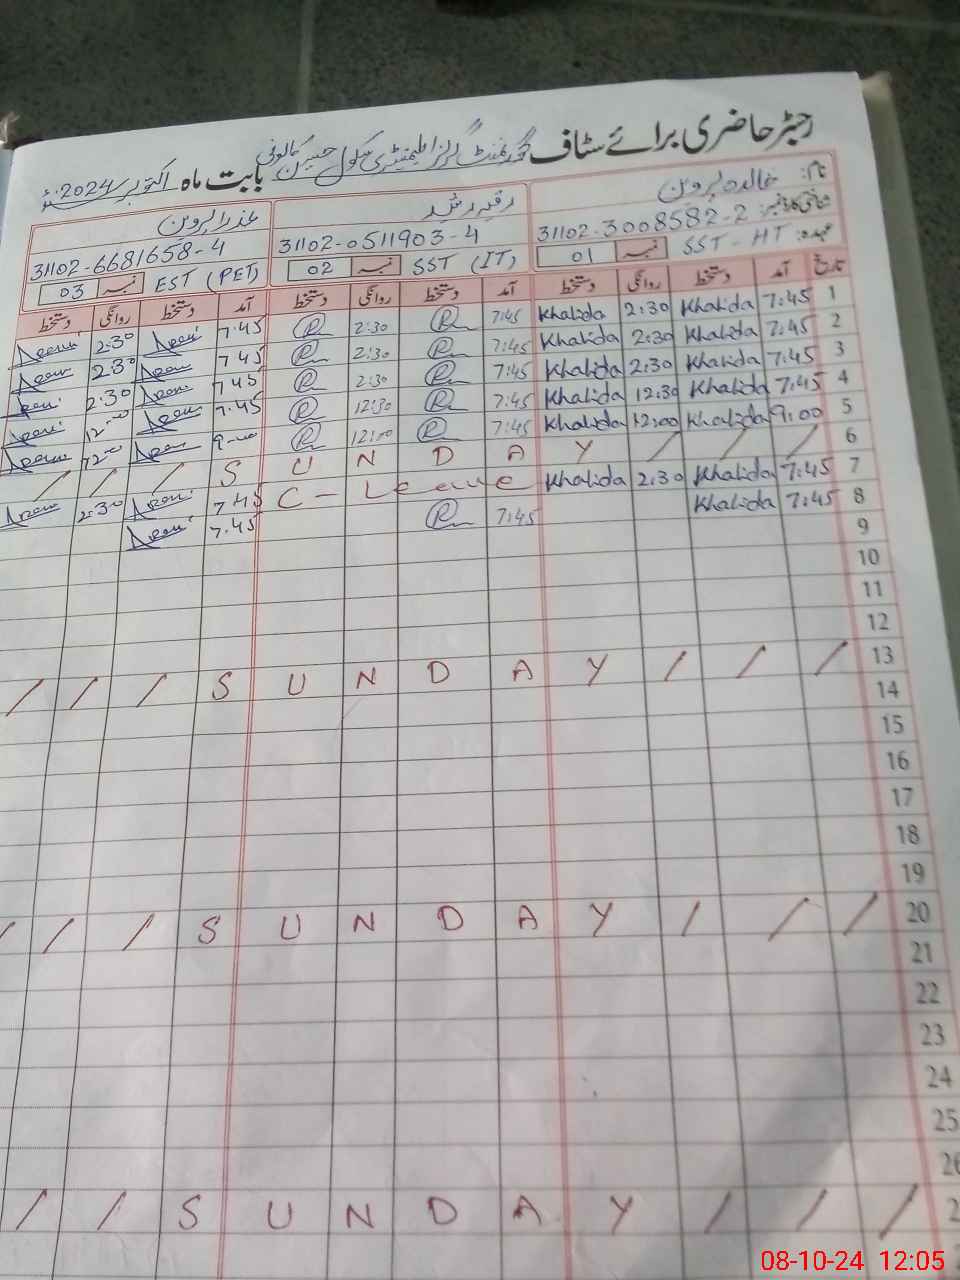 رجسٹر حاضری برائے سٹاف گورنمنٹ گرلز ایلیمنٹری سکول حسین کالونی بابت ماہ اکتوبر 2024ء
نام: خالدہ پروین
شناختی کارڈ نمبر: 31102-3008582-2
عہدہ: SST-HT نمبر 01
31102-0511903-4
SST (IT) نمبر 02
عذرا پروین
31102-6681658-4
EST (PET) نمبر 03
تاریخ آمد دستخط روانگی دستخط آمد دستخط روانگی دستخط آمد دستخط روانگی دستخط
1 7:45 Khalida 2:30 Khalida 7:45 2:30 7.45 2:30
2 7:45 Khalida 2:30 Khalida 7:45 2:30 7.45 2:30
3 7:45 Khalida 2:30 Khalida 7:45 2:30 7.45 2:30
4 7:45 Khalida 12:30 Khalida 7:45 12:30 7.45
5 9:00 Khalida 12:00 Khalida 7:45 12:00 9-00 12-00
6 / / / S U N D A Y / / /
7 7:45 Khalida 2:30 Khalida C-Leave 7.45 2:30
8 7:45 Khalida 7:45 7.45
9
10
11
12
13 / / / S U N D A Y / / /
14
15
16
17
18
19
20 / / / S U N D A Y / / /
21
22
23
24
25
26
/ / / S U N D A Y / /
08-10-24 12:05